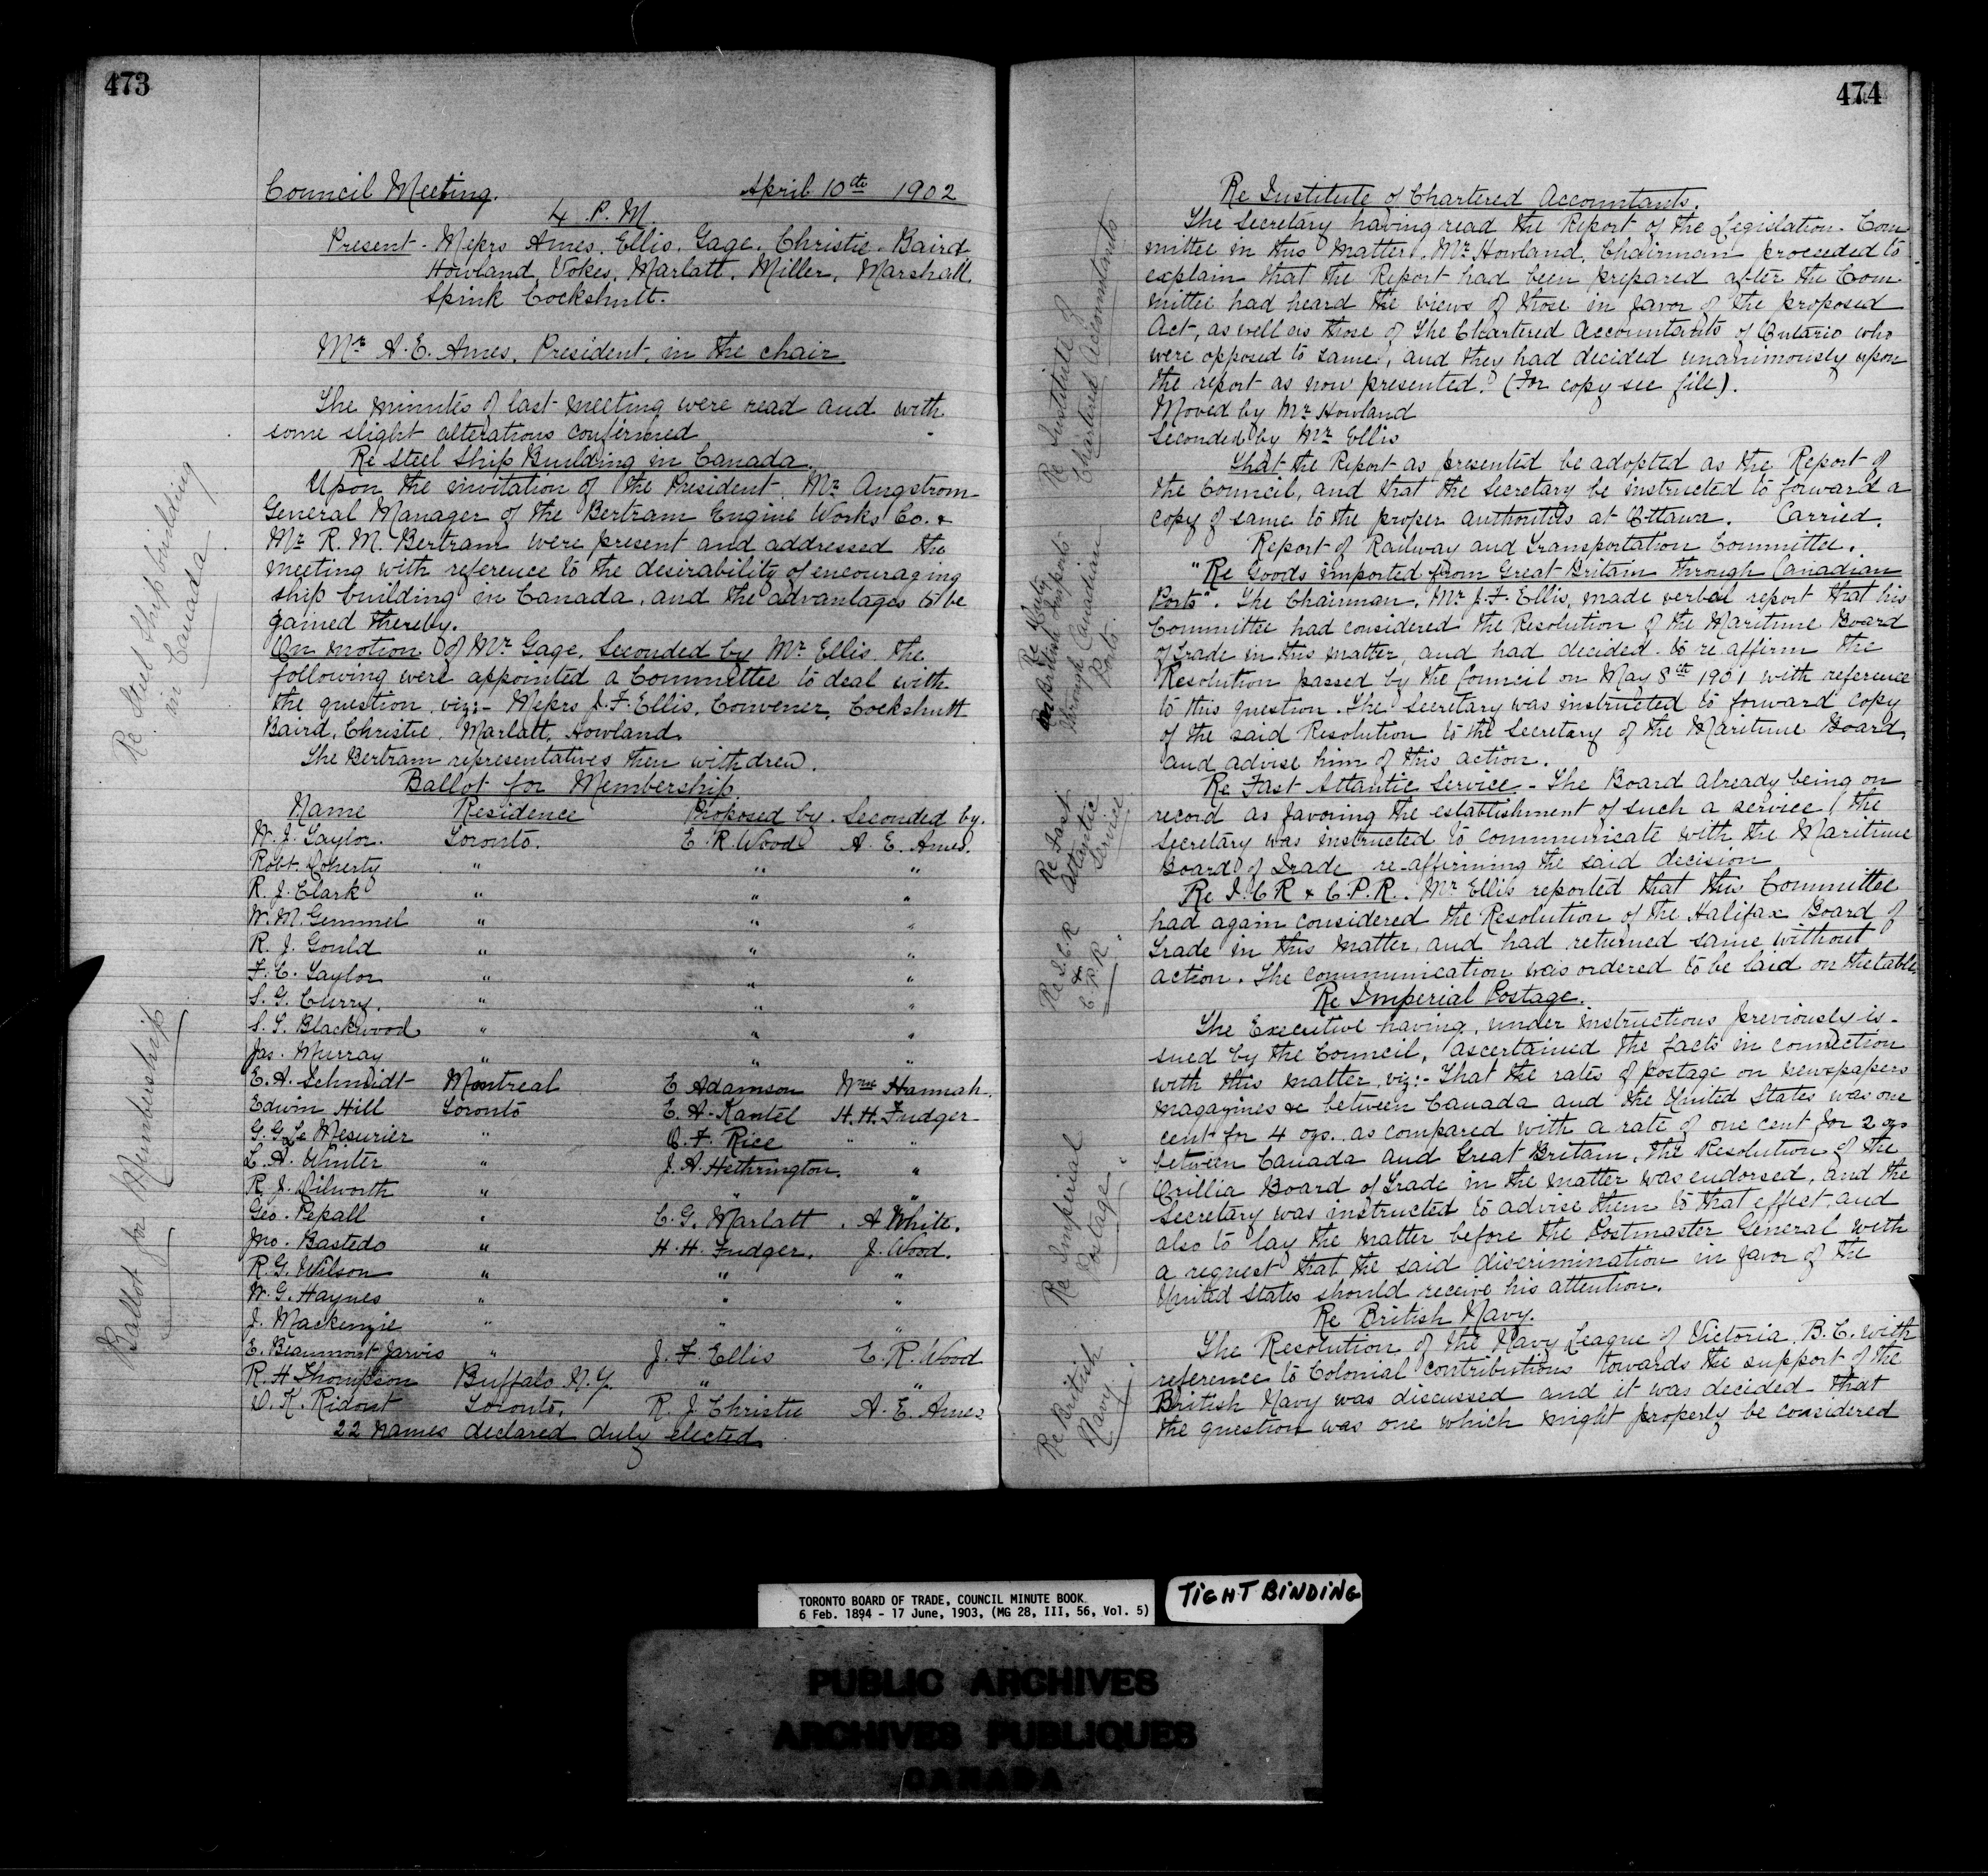 473
Council Meeting. April 10th 1902
4 P.M.
Present - Messrs Ames, Ellis, Gage, Christie, Baird,
Howland, Vokes, Marlatt, Miller, Marshall,
Spink Cockshutt.
Mr A. E. Ames, President, in the chair
The minutes of last meeting were read and with
some slight alterations confirmed
Re Steel Ship Building in Canada.
Re Steel Ship building
in Canada.
Upon the invitation of the President, Mr Angstrom
General Manager of the Bertram Engine Works Co. &
Mr R. M. Bertram were present and addressed the
meeting with reference to the desirability of encouraging
ship building in Canada, and the advantages to be
gained thereby.
On motion of Mr Gage, Seconded by Mr Ellis, the
following were appointed a Committee to deal with
the question, viz:- Messrs J. F. Ellis, Convener, Cockshutt
Baird, Christie, Marlatt, Howland.
The Bertram representatives then withdrew.
Ballot for Membership.
Ballot for Membership
Name Residence Proposed by. Seconded by.
W. J. Taylor. Toronto. E. R. Wood A. E. Ames.
Robt. Doherty " " "
R. J. Clark " " "
W. M. Gemmel " " "
R. J. Gould " " "
F. C. Taylor " " "
S. G. Curry. " " "
S. T. Blackwood " " "
Jas. Murray " " "
E. A. Schmidt Montreal E Adamson Wm Hannah.
Edwin Hill Toronto E. A. Kantel H. H. Fudger
G. G. Le Mesurier " C. F. Rice " "
L. A. Winter " J. A. Hethrington. "
R. J. Dilworth " " "
Geo. Pepall " C. G. Marlatt. A White.
Jno. Bastedo " H. H. Fudger. J. Wood.
R. G. Wilson " " "
W. G. Haynes " " "
J. Mackenzie " " "
E. Beaumont Jarvis " J. F. Ellis E. R. Wood
R. H Thompson Buffalo N.Y. " "
D. K. Ridout Toronto. R. J. Christie A. E. Ames
22 names declared duly elected
474
Re Institute of Chartered Accountants.
Re Institute of
Chartered Accountants
The Secretary having read the Report of the Legislation Com-
mittee in this matter, Mr Howland, Chairman proceeded to
explain that the Report had been prepared after the Com-
mittee had heard the views of those in favor of the proposed
Act, as well as those of the Chartered Accountants of Ontario who
were opposed to same, and they had decided unanimously upon
the report as now presented. (For copy see file).
Moved by Mr Howland
Seconded by Mr Ellis
That the Report as presented be adopted as the Report of
the Council, and that the Secretary be instructed to forward a
copy of same to the proper authorities at Ottawa. Carried.
Report of Railway and Transportation Committee.
"Re Goods imported from Great Britain through Canadian
Ports". The Chairman, Mr J. F. Ellis, made verbal report that his
Committee had considered the Resolution of the Maritime Board
of Trade in this matter, and had decided to re affirm the
Resolution passed by the Council on May 8th 1901 with reference
to this question. The Secretary was instructed to forward copy
of the said Resolution to the Secretary of the Maritime Board,
and advise him of this action.
Re
on British Imports
through Canadian
Ports.
Re Fast Atlantic Service. - The Board already being on
record as favoring the establishment of such a service, the
Secretary was instructed to communicate with the Maritime
Board of Trade re-affirming the said decision.
Re Fast
Atlantic
Service.
Re I.C.R & C.P.R. Mr Ellis reported that this Committee
had again considered the Resolution of the Halifax Board of
Trade in this matter, and had returned same without
action. The communication was ordered to be laid on the table.
Re I.C.R
&
C.P.R.
Re Imperial Postage.
The Executive having, under instructions previously is-
sued by the Council, ascertained the facts in connection
with this matter, viz:- That the rates of postage on newspapers
magazines &c between Canada and the United States was one
cent for 4 ozs. as compared with a rate of one cent for 2 ozs
between Canada and Great Britain, the Resolution of the
Orillia Board of Trade in the matter was endorsed, and the
Secretary was instructed to advise them to that effect, and
also to lay the matter before the Postmaster General with
a request that the said discrimination in favor of the
United States should receive his attention.
Re Imperial
Postage.
Re British Navy.
The Resolution of the Navy League of Victoria, B.C. with
reference to Colonial contributions towards the support of the
British Navy was discussed and it was decided that
the question was one which might properly be considered
Re British
Navy.
TORONTO BOARD OF TRADE, COUNCIL MINUTE BOOK.
6 Feb. 1894 - 17 June, 1903, (MG 28, III, 56, Vol. 5)
TIGHT BINDING
PUBLIC ARCHIVES
ARCHIVES PUBLIQUES
CANADA